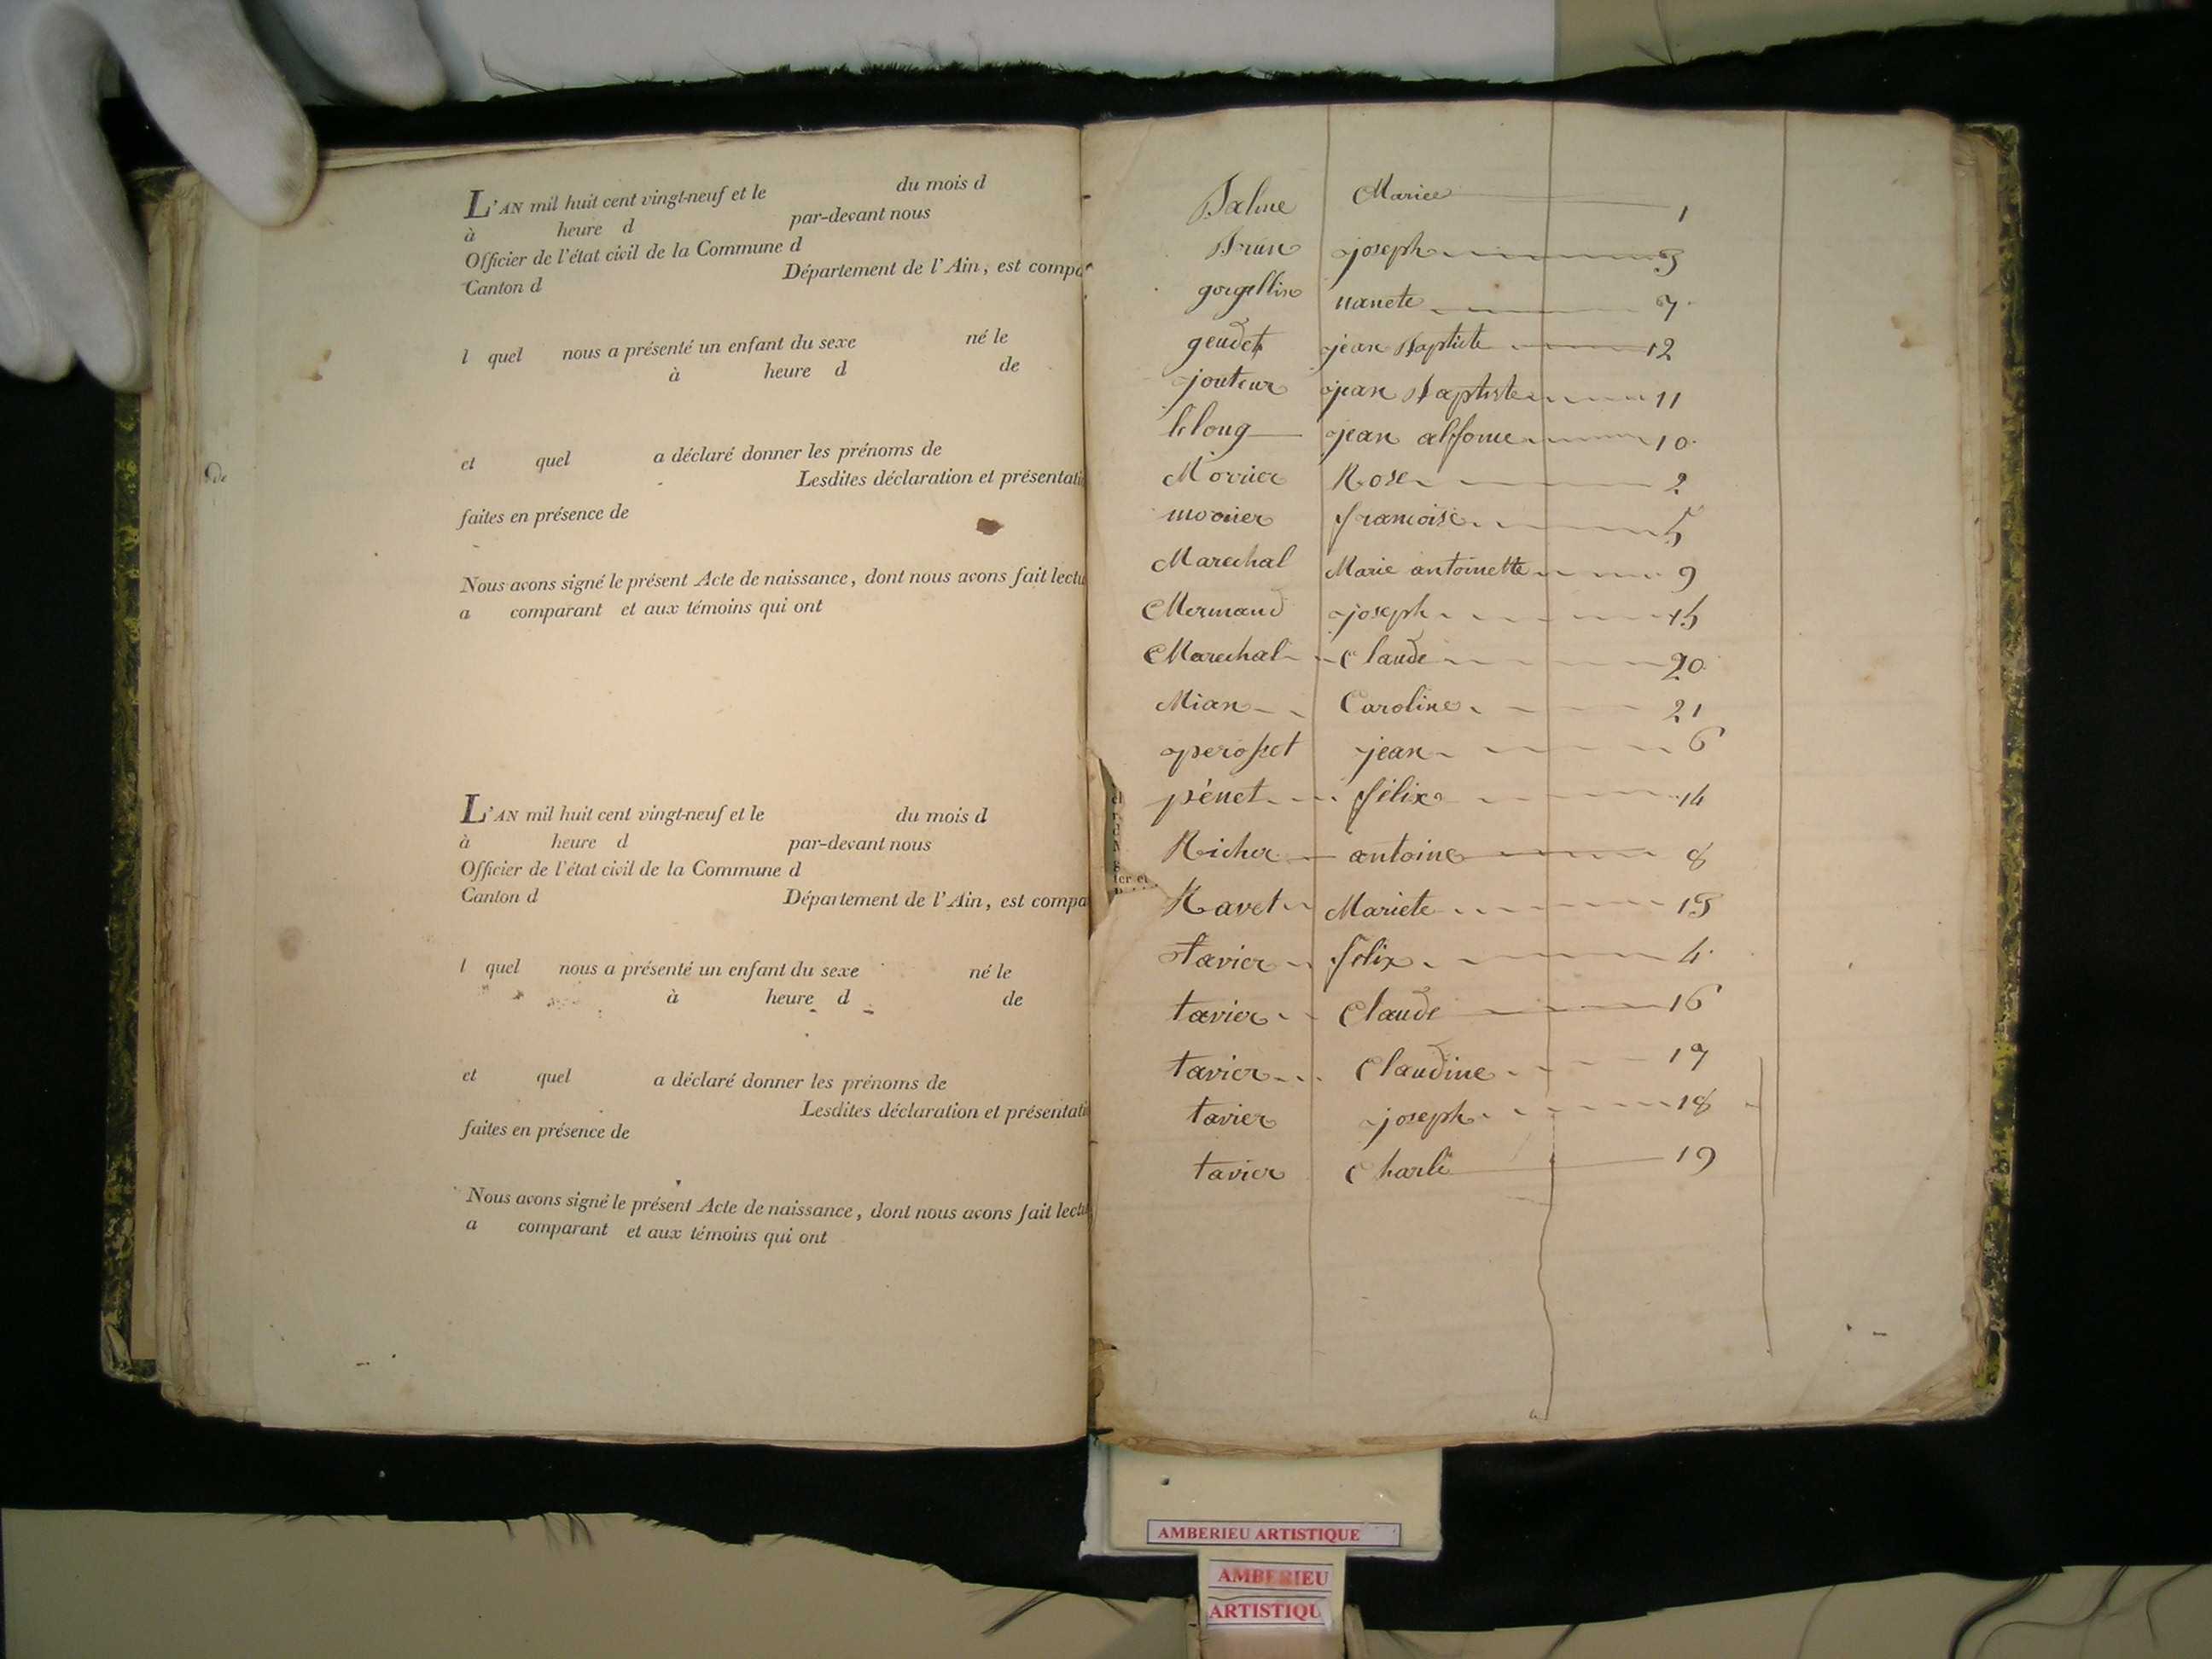 L'AN mil huit cent vingt-neuf et le du mois d
à heure d par-devant nous
Officier de l'état civil de la Commune d
Canton d Département de l'Ain, est compa
l quel nous a présenté un enfant du sexe né le
à heure d de
et quel a déclaré donner les prénoms de
Lesdites déclaration et présentati
faites en présence de
Nous avons signé le présent Acte de naissance, dont nous avons fait lectu
a comparant et aux témoins qui ont
L'AN mil huit cent vingt-neuf et le du mois d
à heure d par-devant nous
Officier de l'état civil de la Commune d
Canton d Département de l'Ain, est compa
l quel nous a présenté un enfant du sexe né le
à heure d de
et quel a déclaré donner les prénoms de
Lesdites déclaration et présentati
faites en présence de
Nous avons signé le présent Acte de naissance, dont nous avons fait lectu
a comparant et aux témoins qui ont
Balme Mariee 1
Brun joseph 3
nanete 7
geudet jean Baptiste 12
jouteur jean Baptiste 11
leloug jean alfonce 10
Morrier Rose 2
morrier francoise 5
Marechal Marie antoinette 9
Mermand joseph 15
Marechal Claude 20
Mian Caroline 21
perosset jean 6
pénet félix 14
Richer antoine 8
Ravet Mariete 13
tavier félix 4
tavier Claude 16
tavier Claudine 17
tavier joseph 18
tavier Charle 19
AMBERIEU ARTISTIQUE
AMBERIEU
ARTISTIQU